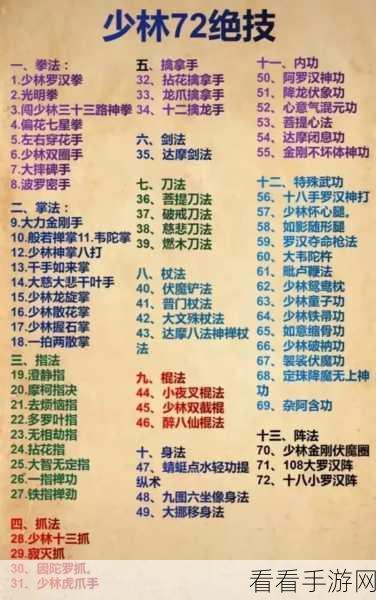 少林72绝技
一、拳法：
1.少林罗汉拳
2.光明拳
3.闯少林三十三路神拳
4.偏花七星拳
5.左右穿花手
6.少林双圈手
7.大摔碑手
8.波罗密手
二、掌法：
9.大力金刚手
10.般若禅掌11.韦陀掌
12.少林神掌八打
13.千手如来掌
14.大慈大悲千叶手
15.少林龙旋掌
16.少林散花掌
17.少林握石掌
18.一拍两散掌
三、指法
19.澄静指
20.摩柯指决
21.去烦恼指
22.多罗叶指
23.无相劫指
24.拈花指
25.大智无定指
26.一指禅功
27.铁指禅劲
四、抓法
28.少林十三抓
29.寂灭抓
30、因陀罗抓。
31、少林虎爪手
五、擒拿手
32、拈花擒拿手
33、龙爪擒拿手
34、十二擒龙手
六、剑法
35、达摩剑法
七、刀法
36、菩提刀法
37、破戒刀法
38、慈悲刀法
39、燃木刀法
八、杖法
40、伏魔铲法
41、普门杖法
42、大文殊杖法
43、达摩八法神禅杖
法
九、棍法
44、小夜叉棍法
45、少林双截棍
46、醉八仙棍法
十、身法
47、蜻蜓点水轻功提
纵术
48、九图六坐像身法
49、大挪移身法
十一、内功
50、阿罗汉神功
51、降龙伏象功
52、心意气混元功
53、菩提心法
54、达摩闭息功
55、金刚不坏体神功
十二、特殊武功
56、十八手罗汉神打
57、少林怀心腿。
58、如影随形腿
59、罗汉夺命枪法
60、大韦陀杵
61、毗卢鞭法
62、少林鸳鸯枕
63、少林童子功
64、少林铁帚功
65、如意缩骨功
66、少林破衲功
67、袈裟伏魔功
68、定珠降魔无上神
功
69、杂阿含功
十三、阵法
70、少林金刚伏魔圈
71、108大罗汉阵
72、十八小罗汉阵
看看手游网